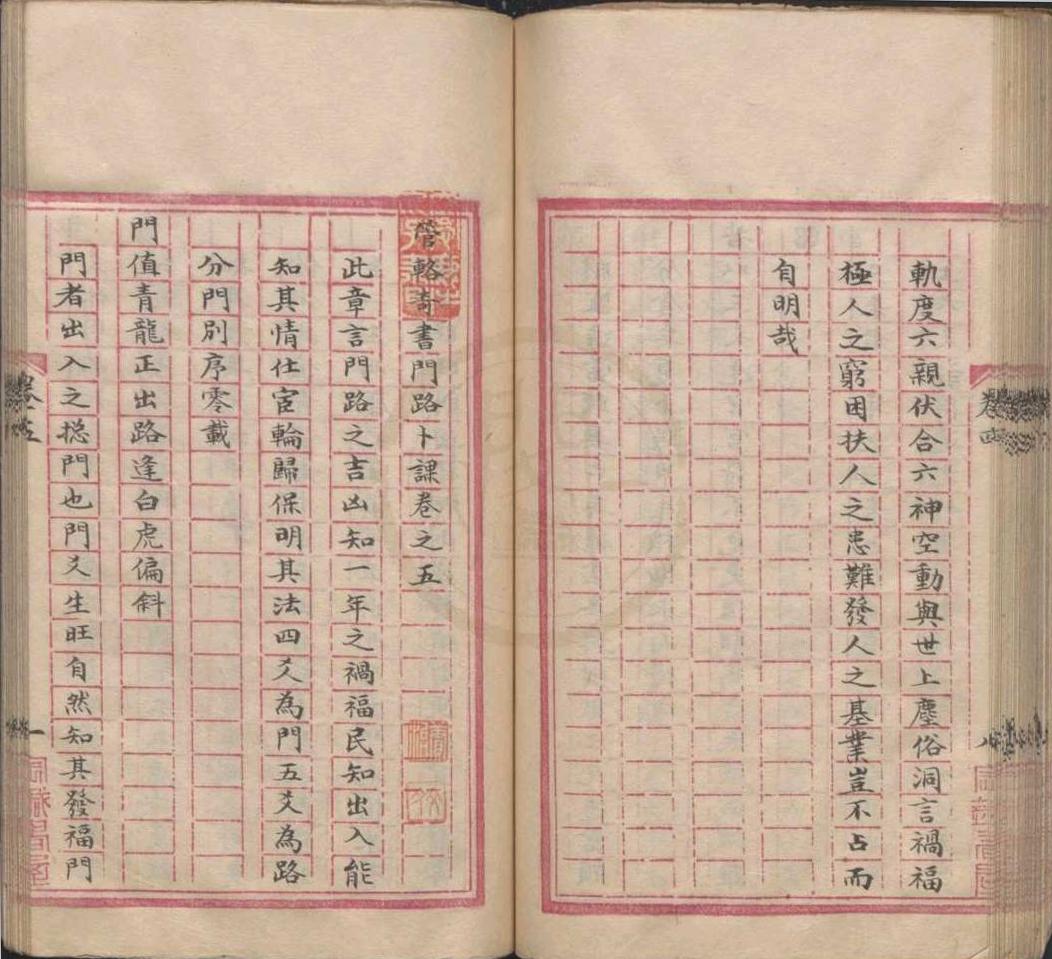 軌度六親伏合六神空動與世上塵俗洞言禍福
極人之窮困扶人之患難發人之基業豈不占而
自明哉
卷四
八
管輅奇書門路卜課卷之五
此章言門路之吉凶知一年之禍福民知出入能
知其情仕宦輪歸保明其法四爻為門五爻為路
分門別序零載
門值青龍正出路逢白虎偏斜
門者出入之搃門也門爻生旺自然知其發福門
卷五
一